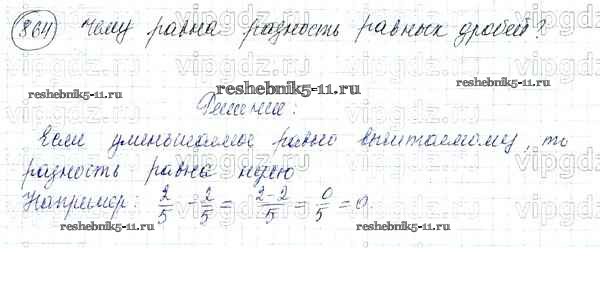 864 Чему равна разность равных дробей?
reshebnik5-11.ru reshebnik5-11.ru
Решение:
Если уменьшаемое равно вычитаемому, то
разность равна нулю
Например: 2/5 - 2/5 = 2-2/5 = 0/5 = 0.
reshebnik5-11.ru reshebnik5-11.ru
vipgdz.ru